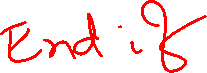 End if